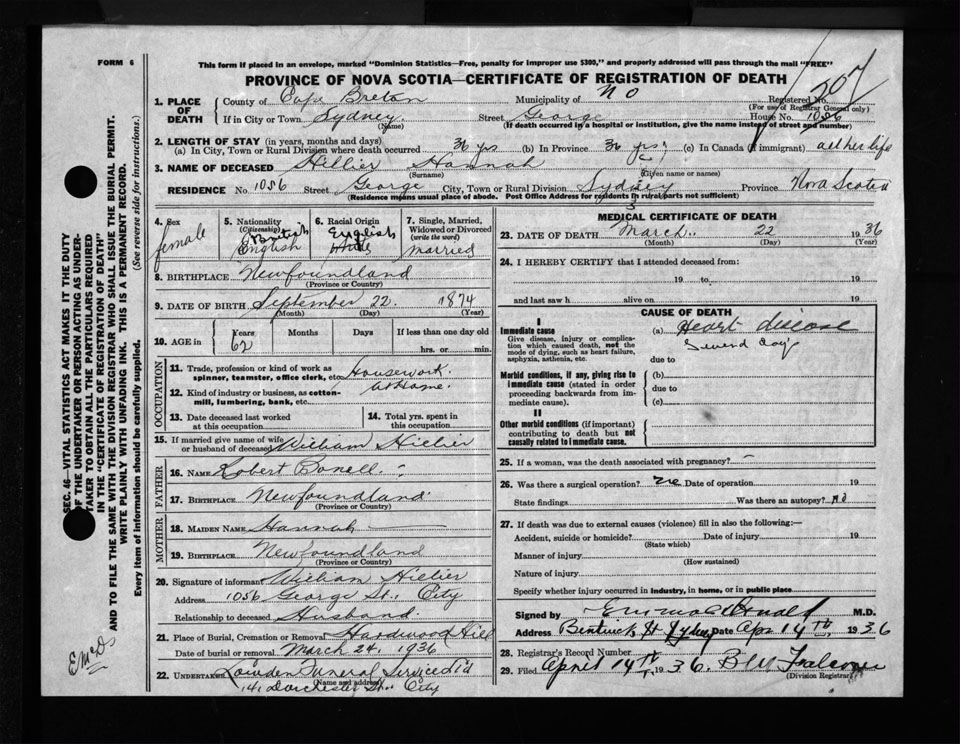 FORM 6
This form if placed in an envelope, marked "Dominion Statistics—Free, penalty for improper use $300," and properly addressed will pass through the mail "FREE"
PROVINCE OF NOVA SCOTIA—CERTIFICATE OF REGISTRATION OF DEATH
207
1. PLACE OF DEATH
County of Cape Breton Municipality of No Registered No.
(For use of Registrar General only)
If in City or Town Sydney Street George House No. 1056
(Name) (If death occurred in a hospital or institution, give the name instead of street and number)
2. LENGTH OF STAY (in years, months and days)
(a) In City, Town or Rural Division where death occurred 36 yrs (b) In Province 36 yrs (c) In Canada (if immigrant) all her life
3. NAME OF DECEASED Hillier Hannah
(Surname) (Given name or names)
RESIDENCE No 1056 Street George City, Town or Rural Division Sydney Province Nova Scotia
(Residence means usual place of abode. Post Office Address for residents in rural parts not sufficient)
SEC. 46—VITAL STATISTICS ACT MAKES IT THE DUTY
OF THE UNDERTAKER OR PERSON ACTING AS UNDERTAKER TO OBTAIN ALL THE PARTICULARS REQUIRED
IN THE "CERTIFICATE OF REGISTRATION OF DEATH"
AND TO FILE THE SAME WITH THE DIVISION REGISTRAR WHO SHALL ISSUE THE BURIAL PERMIT.
WRITE PLAINLY WITH UNFADING INK. THIS IS A PERMANENT RECORD.
Every item of information should be carefully supplied. (See reverse side for instructions.)
EMcD
4. Sex
female
5. Nationality
(Citizenship)
British
English
6. Racial Origin
English
7. Single, Married, Widowed or Divorced
(write the word)
Married
8. BIRTHPLACE Newfoundland
(Province or Country)
9. DATE OF BIRTH September 22. 1874
(Month) (Day) (Year)
10. AGE in
Years Months Days If less than one day old
62
hrs. or min.
OCCUPATION
11. Trade, profession or kind of work as spinner, teamster, office clerk, etc. Housework
12. Kind of industry or business, as cotton-mill, lumbering, bank, etc. at Home.
13. Date deceased last worked at this occupation
14. Total yrs. spent in this occupation
15. If married give name of wife or husband of deceased William Hillier
FATHER
16. NAME Robert Bonell
17. BIRTHPLACE Newfoundland
(Province or Country)
MOTHER
18. MAIDEN NAME Hannah
19. BIRTHPLACE Newfoundland
(Province or Country)
20. Signature of informant William Hillier
Address 1056 George St. City
Relationship to deceased Husband
21. Place of Burial, Cremation or Removal Hardwood Hill
Date of burial or removal March 24. 1936
22. UNDERTAKER Lowden Funeral Service Ltd
(Name and address)
141 Dorchester St. City
MEDICAL CERTIFICATE OF DEATH
23. DATE OF DEATH March 22 1936
(Month) (Day) (Year)
24. I HEREBY CERTIFY that I attended deceased from:
19 to 19
and last saw h alive on 19
CAUSE OF DEATH
I
Immediate cause
Give disease, injury or complication which caused death, not the mode of dying, such as heart failure, asphyxia, asthenia, etc.
(a) Heart disease
due to
Morbid conditions, if any, giving rise to immediate cause (stated in order proceeding backwards from immediate cause).
(b)
due to
(c)
II
Other morbid conditions (if important) contributing to death but not causally related to immediate cause.
25. If a woman, was the death associated with pregnancy? -
26. Was there a surgical operation? no Date of operation 19
State findings Was there an autopsy? no
27. If death was due to external causes (violence) fill in also the following:—
Accident, suicide or homicide? Date of injury 19
(State which)
Manner of injury
(How sustained)
Nature of injury
Specify whether injury occurred in Industry, in home, or in public place
Signed by M.D.
Address Bentinck St Sydney Date Apr 14th, 1936
28. Registrar's Record Number
29. Filed April 14th 1936.
(Division Registrar)